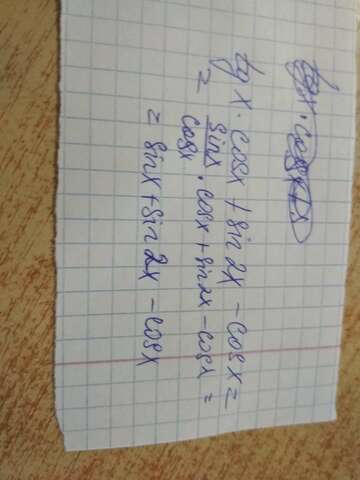 tg x · cos x + sin 2x - cos x =
= sin x / cos x · cos x + sin 2x - cos x =
= sin x + sin 2x - cos x